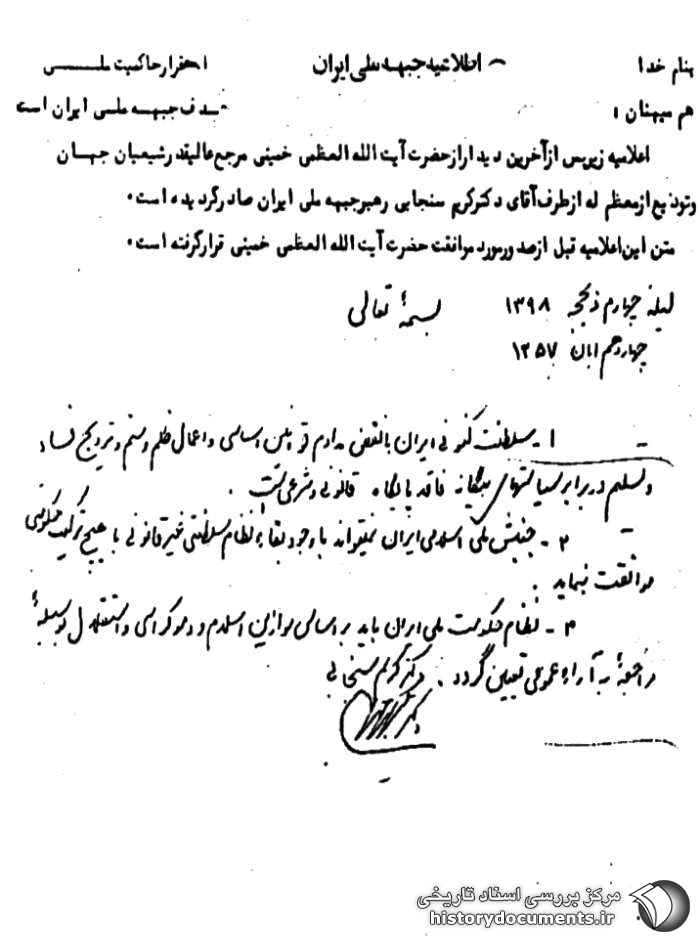 بنام خدا اطلاعیه جبهه ملی ایران استقرار حاکمیت ملی
هم میهنان : هدف جبهه ملی ایران است
اعلامیه زیر پس از آخرین دیدار از حضرت آیت الله العظمی خمینی مرجع عالیقدر شیعیان جهان
وتودیع از معظم له از طرف آقای دکتر کریم سنجابی رهبر جبهه ملی ایران صادر گردیده است.
متن این اعلامیه قبل از صدور مورد موافقت حضرت آیت الله العظمی خمینی قرار گرفته است.
لیله چهارم ذیحجه ۱۳۹۸ بسمه تعالی
چهاردهم ابان ۱۳۵۷
۱ - سلطنت کنونی ایران با نقض مداوم قوانین اساسی و اعمال ظلم و ستم و ترویج فساد
و تسلیم در برابر سیاستهای بیگانه فاقد پایگاه قانونی و شرعی است .
۲ - جنبش ملی اسلامی ایران نمیتواند با وجود بقاء نظام سلطنتی غیر قانونی با هیچ ترکیب حکومتی
موافقت نماید .
۳ - نظام حکومت ملی ایران باید بر اساس موازین اسلام و دموکراسی و استقلال بوسیله
مراجعه به آراء عمومی تعیین گردد . دکتر کریم سنجابی
مرکز بررسی اسناد تاریخی
historydocuments.ir